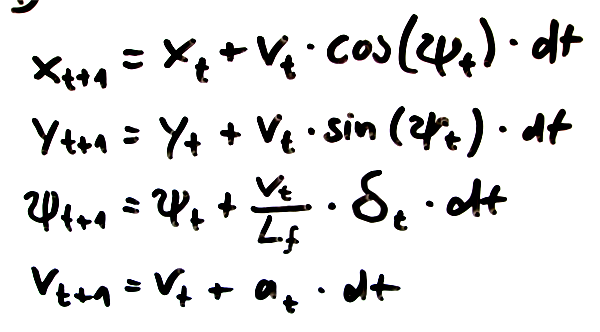 x_{t+1} = x_t + v_t · cos(ψ_t) · dt
y_{t+1} = y_t + v_t · sin(ψ_t) · dt
ψ_{t+1} = ψ_t + v_t / L_f · δ_t · dt
v_{t+1} = v_t + a_t · dt